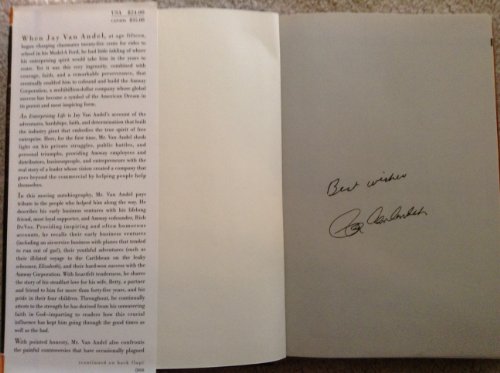 USA $24.00
CANADA $35.00
When Jay Van Andel, at age fifteen,
began charging classmates twenty-five cents for rides to
school in his Model-A Ford, he had little inkling of where
his enterprising spirit would take him in the years to
come. Yet it was this very ingenuity, combined with
courage, faith, and a remarkable perseverance, that
eventually enabled him to cofound and build the Amway
Corporation, a multibillion-dollar company whose global
success has become a symbol of the American Dream in
its purest and most inspiring form.
An Enterprising Life is Jay Van Andel's account of the
adventures, hardships, faith, and determination that built
the industry giant that embodies the true spirit of free
enterprise. Here, for the first time, Mr. Van Andel sheds
light on his private struggles, public battles, and
personal triumphs, providing Amway employees and
distributors, businesspeople, and entrepreneurs with the
real story of a leader whose vision created a company that
goes beyond the commercial by helping people help
themselves.
In this moving autobiography, Mr. Van Andel pays
tribute to the people who helped him along the way. He
describes his early business ventures with his lifelong
friend, most loyal supporter, and Amway cofounder, Rich
DeVos. Providing inspiring and often humorous
accounts, he recalls their early business ventures
(including an air-service business with planes that tended
to run out of gas), their youthful adventures (such as
their ill-fated voyage to the Caribbean on the leaky
schooner, Elizabeth), and their hard-won success with the
Amway Corporation. With heartfelt tenderness, he shares
the story of his steadfast love for his wife, Betty, a partner
and friend to him for more than forty-five years, and his
pride in their four children. Throughout, he continually
attests to the strength he has derived from his unwavering
faith in God—imparting to readers how this crucial
influence has kept him going through the good times as
well as the bad.
With pointed honesty, Mr. Van Andel also confronts
the painful controversies that have occasionally plagued
(continued on back flap)
Best wishes
Jay VanAndel